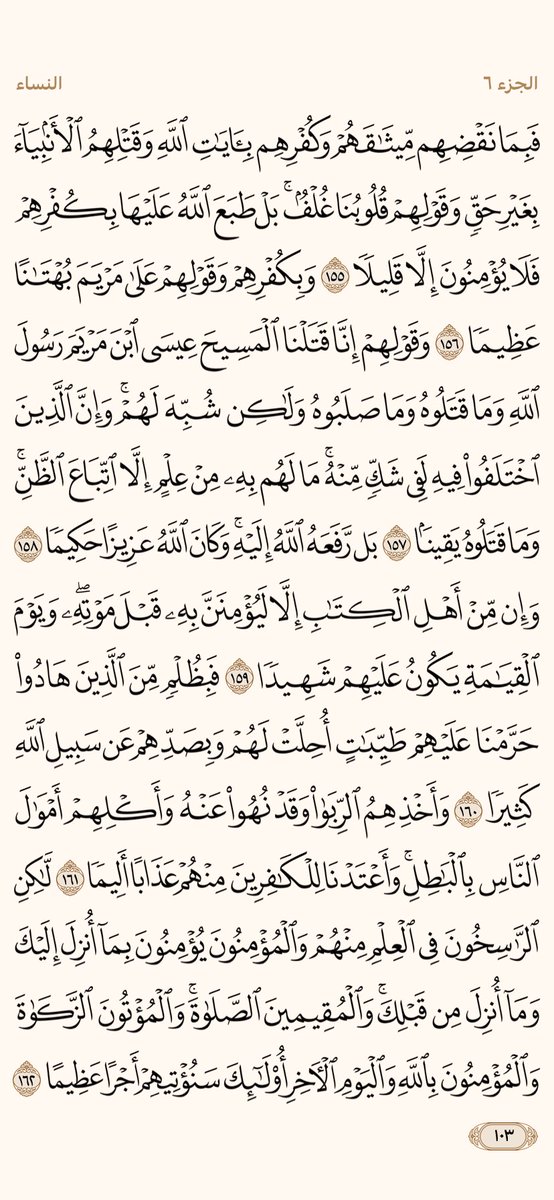 الجزء ٦
النساء
فَبِمَا نَقْضِهِم مِّيثَٰقَهُمْ وَكُفْرِهِم بِـَٔايَٰتِ ٱللَّهِ وَقَتْلِهِمُ ٱلْأَنۢبِيَآءَ
بِغَيْرِ حَقٍّ وَقَوْلِهِمْ قُلُوبُنَا غُلْفٌۢ ۚ بَلْ طَبَعَ ٱللَّهُ عَلَيْهَا بِكُفْرِهِمْ
فَلَا يُؤْمِنُونَ إِلَّا قَلِيلًا ١٥٥ وَبِكُفْرِهِمْ وَقَوْلِهِمْ عَلَىٰ مَرْيَمَ بُهْتَٰنًا
عَظِيمًا ١٥٦ وَقَوْلِهِمْ إِنَّا قَتَلْنَا ٱلْمَسِيحَ عِيسَى ٱبْنَ مَرْيَمَ رَسُولَ
ٱللَّهِ وَمَا قَتَلُوهُ وَمَا صَلَبُوهُ وَلَٰكِن شُبِّهَ لَهُمْ ۚ وَإِنَّ ٱلَّذِينَ
ٱخْتَلَفُوا۟ فِيهِ لَفِى شَكٍّ مِّنْهُ ۚ مَا لَهُم بِهِۦ مِنْ عِلْمٍ إِلَّا ٱتِّبَاعَ ٱلظَّنِّ ۚ
وَمَا قَتَلُوهُ يَقِينًۢا ١٥٧ بَل رَّفَعَهُ ٱللَّهُ إِلَيْهِ ۚ وَكَانَ ٱللَّهُ عَزِيزًا حَكِيمًا ١٥٨
وَإِن مِّنْ أَهْلِ ٱلْكِتَٰبِ إِلَّا لَيُؤْمِنَنَّ بِهِۦ قَبْلَ مَوْتِهِۦ ۖ وَيَوْمَ
ٱلْقِيَٰمَةِ يَكُونُ عَلَيْهِمْ شَهِيدًا ١٥٩ فَبِظُلْمٍ مِّنَ ٱلَّذِينَ هَادُوا۟
حَرَّمْنَا عَلَيْهِمْ طَيِّبَٰتٍ أُحِلَّتْ لَهُمْ وَبِصَدِّهِمْ عَن سَبِيلِ ٱللَّهِ
كَثِيرًا ١٦٠ وَأَخْذِهِمُ ٱلرِّبَوٰا۟ وَقَدْ نُهُوا۟ عَنْهُ وَأَكْلِهِمْ أَمْوَٰلَ
ٱلنَّاسِ بِٱلْبَٰطِلِ ۚ وَأَعْتَدْنَا لِلْكَٰفِرِينَ مِنْهُمْ عَذَابًا أَلِيمًا ١٦١ لَّٰكِنِ
ٱلرَّٰسِخُونَ فِى ٱلْعِلْمِ مِنْهُمْ وَٱلْمُؤْمِنُونَ يُؤْمِنُونَ بِمَآ أُنزِلَ إِلَيْكَ
وَمَآ أُنزِلَ مِن قَبْلِكَ ۚ وَٱلْمُقِيمِينَ ٱلصَّلَوٰةَ ۚ وَٱلْمُؤْتُونَ ٱلزَّكَوٰةَ
وَٱلْمُؤْمِنُونَ بِٱللَّهِ وَٱلْيَوْمِ ٱلْـَٔاخِرِ أُو۟لَٰٓئِكَ سَنُؤْتِيهِمْ أَجْرًا عَظِيمًا ١٦٢
١٠٣